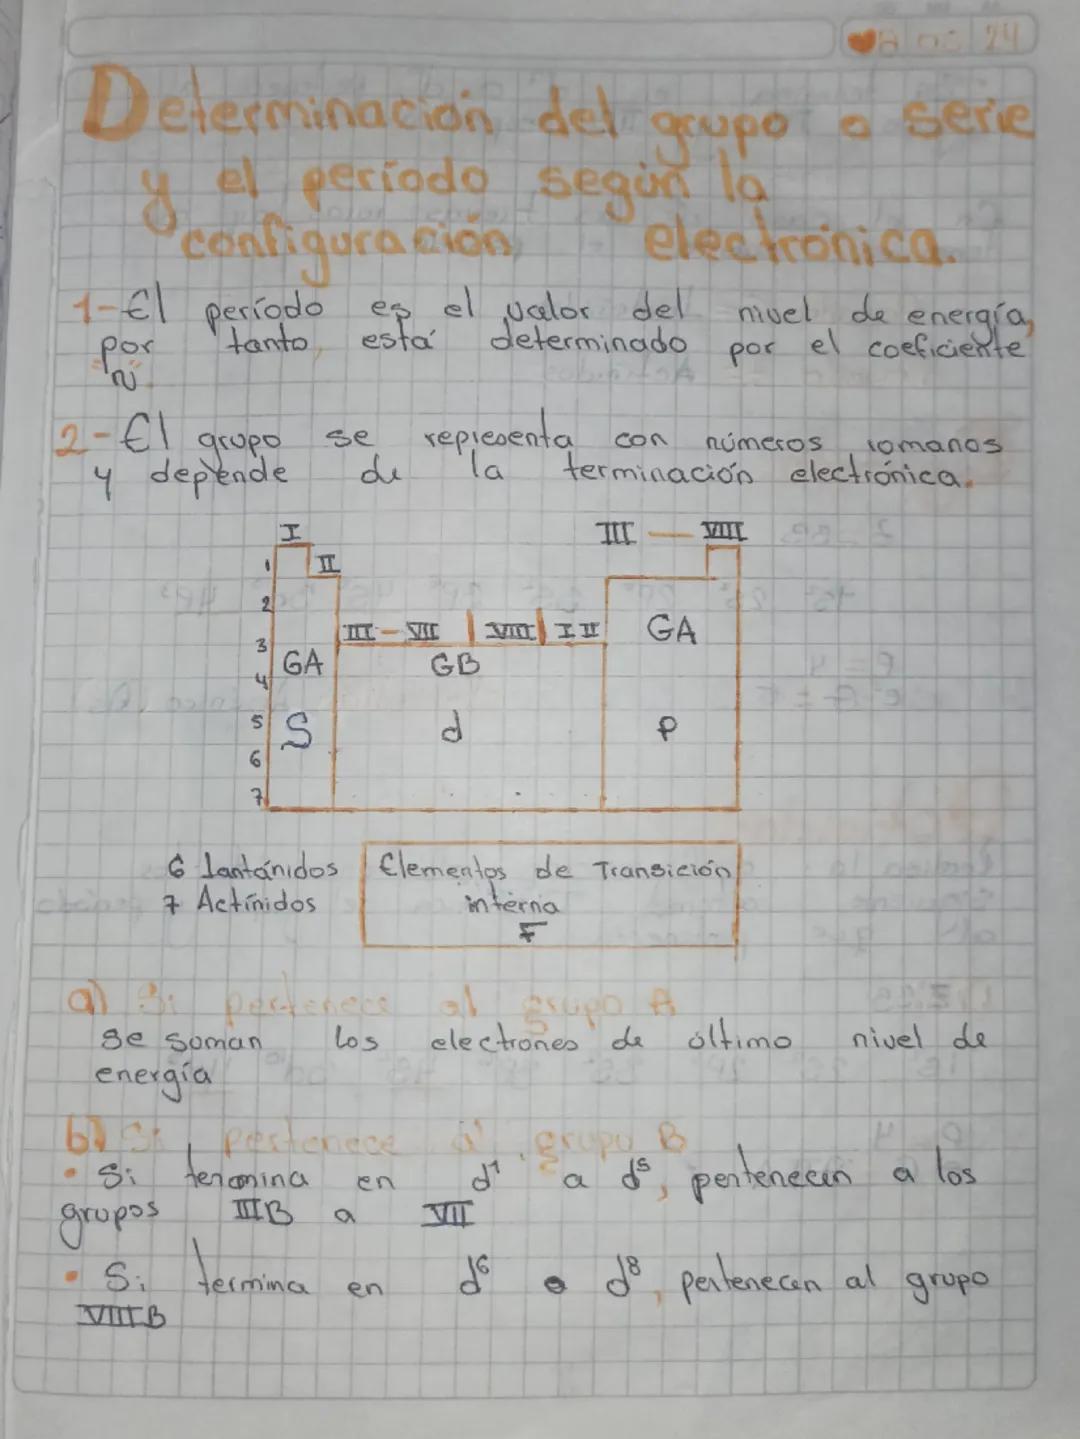 24
Determinación del grupo o serie
y el período según la
configuración electrónica.
1-El período es el valor del nivel de energía,
por tanto, está determinado por el coeficiente
"n"
2-El grupo se representa con números romanos
y depende de la terminación electrónica.
I III — VIII
1 II
2
III - VII | VIII | I II GA
3
GA GB
4
5 S d p
6
7
6 lantánidos Elementos de Transición
7 Actínidos interna
F
a) Si pertenece al grupo A
se suman los electrones de último nivel de
energía
b) Si pertenece al grupo B
• Si termina en d¹ a d⁵, pertenecen a los
grupos IIIB a VII
• Si termina en d⁶ o d⁸, pertenecen al grupo
VIIIB